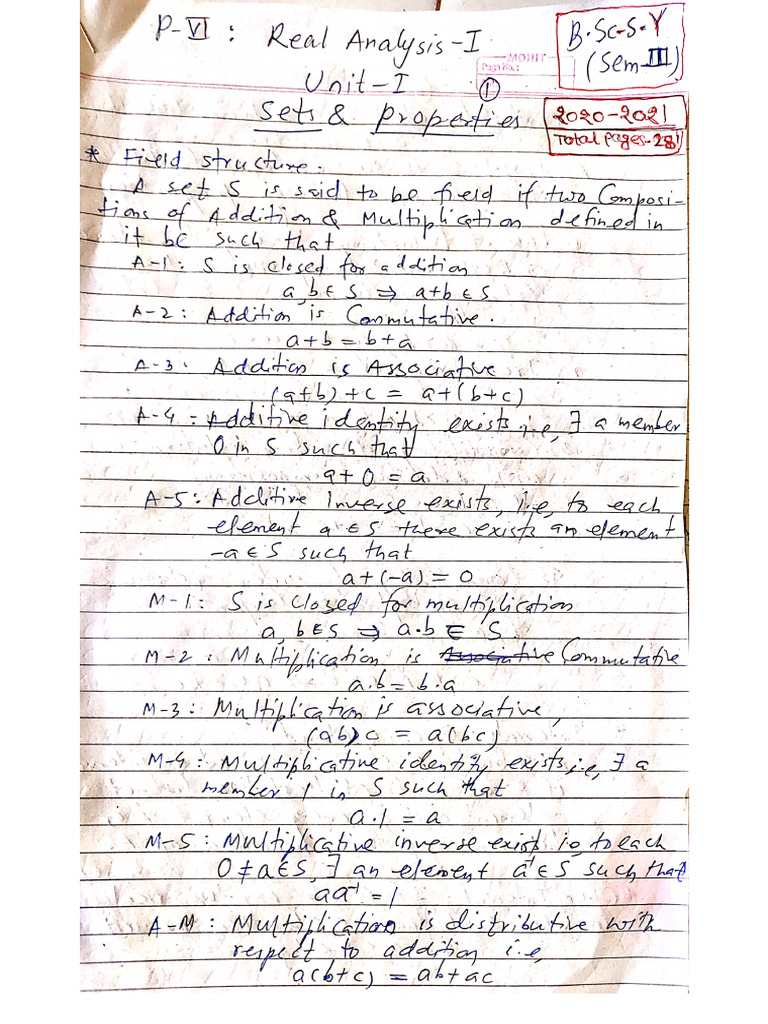 P-VI : Real Analysis-I
B.Sc-S.Y
(Sem-III)
MOHIT
Page No.:
Unit-I
1
Sets & Properties
2020-2021
Total Pages-28
* Field structure.
A set S is said to be field if two Composi-
tions of Addition & Multiplication defined in
it be such that
A-1: S is closed for addition
a, b ∈ S ⇒ a+b ∈ S
A-2: Addition is Commutative.
a+b = b+a
A-3. Addition is Associative
(a+b)+c = a+(b+c)
A-4 - Additive identity exists i.e, ∃ a member
0 in S such that
a+0 = a
A-5: Additive inverse exists, i.e, to each
element a ∈ S there exists an element
-a ∈ S such that
a+(-a) = 0
M-1: S is closed for multiplication
a, b ∈ S ⇒ a.b ∈ S
M-2: Multiplication is Associative Commutative
a.b = b.a
M-3: Multiplication is associative,
(ab)c = a(bc)
M-4: Multiplicative identity exists i.e, ∃ a
member 1 in S such that
a.1 = a
M-5: Multiplicative inverse exists ie to each
0 ≠ a ∈ S, ∃ an element a⁻¹ ∈ S such that
aa⁻¹ = 1
A-M: Multiplication is distributive with
respect to addition i.e,
a(b+c) = ab+ac